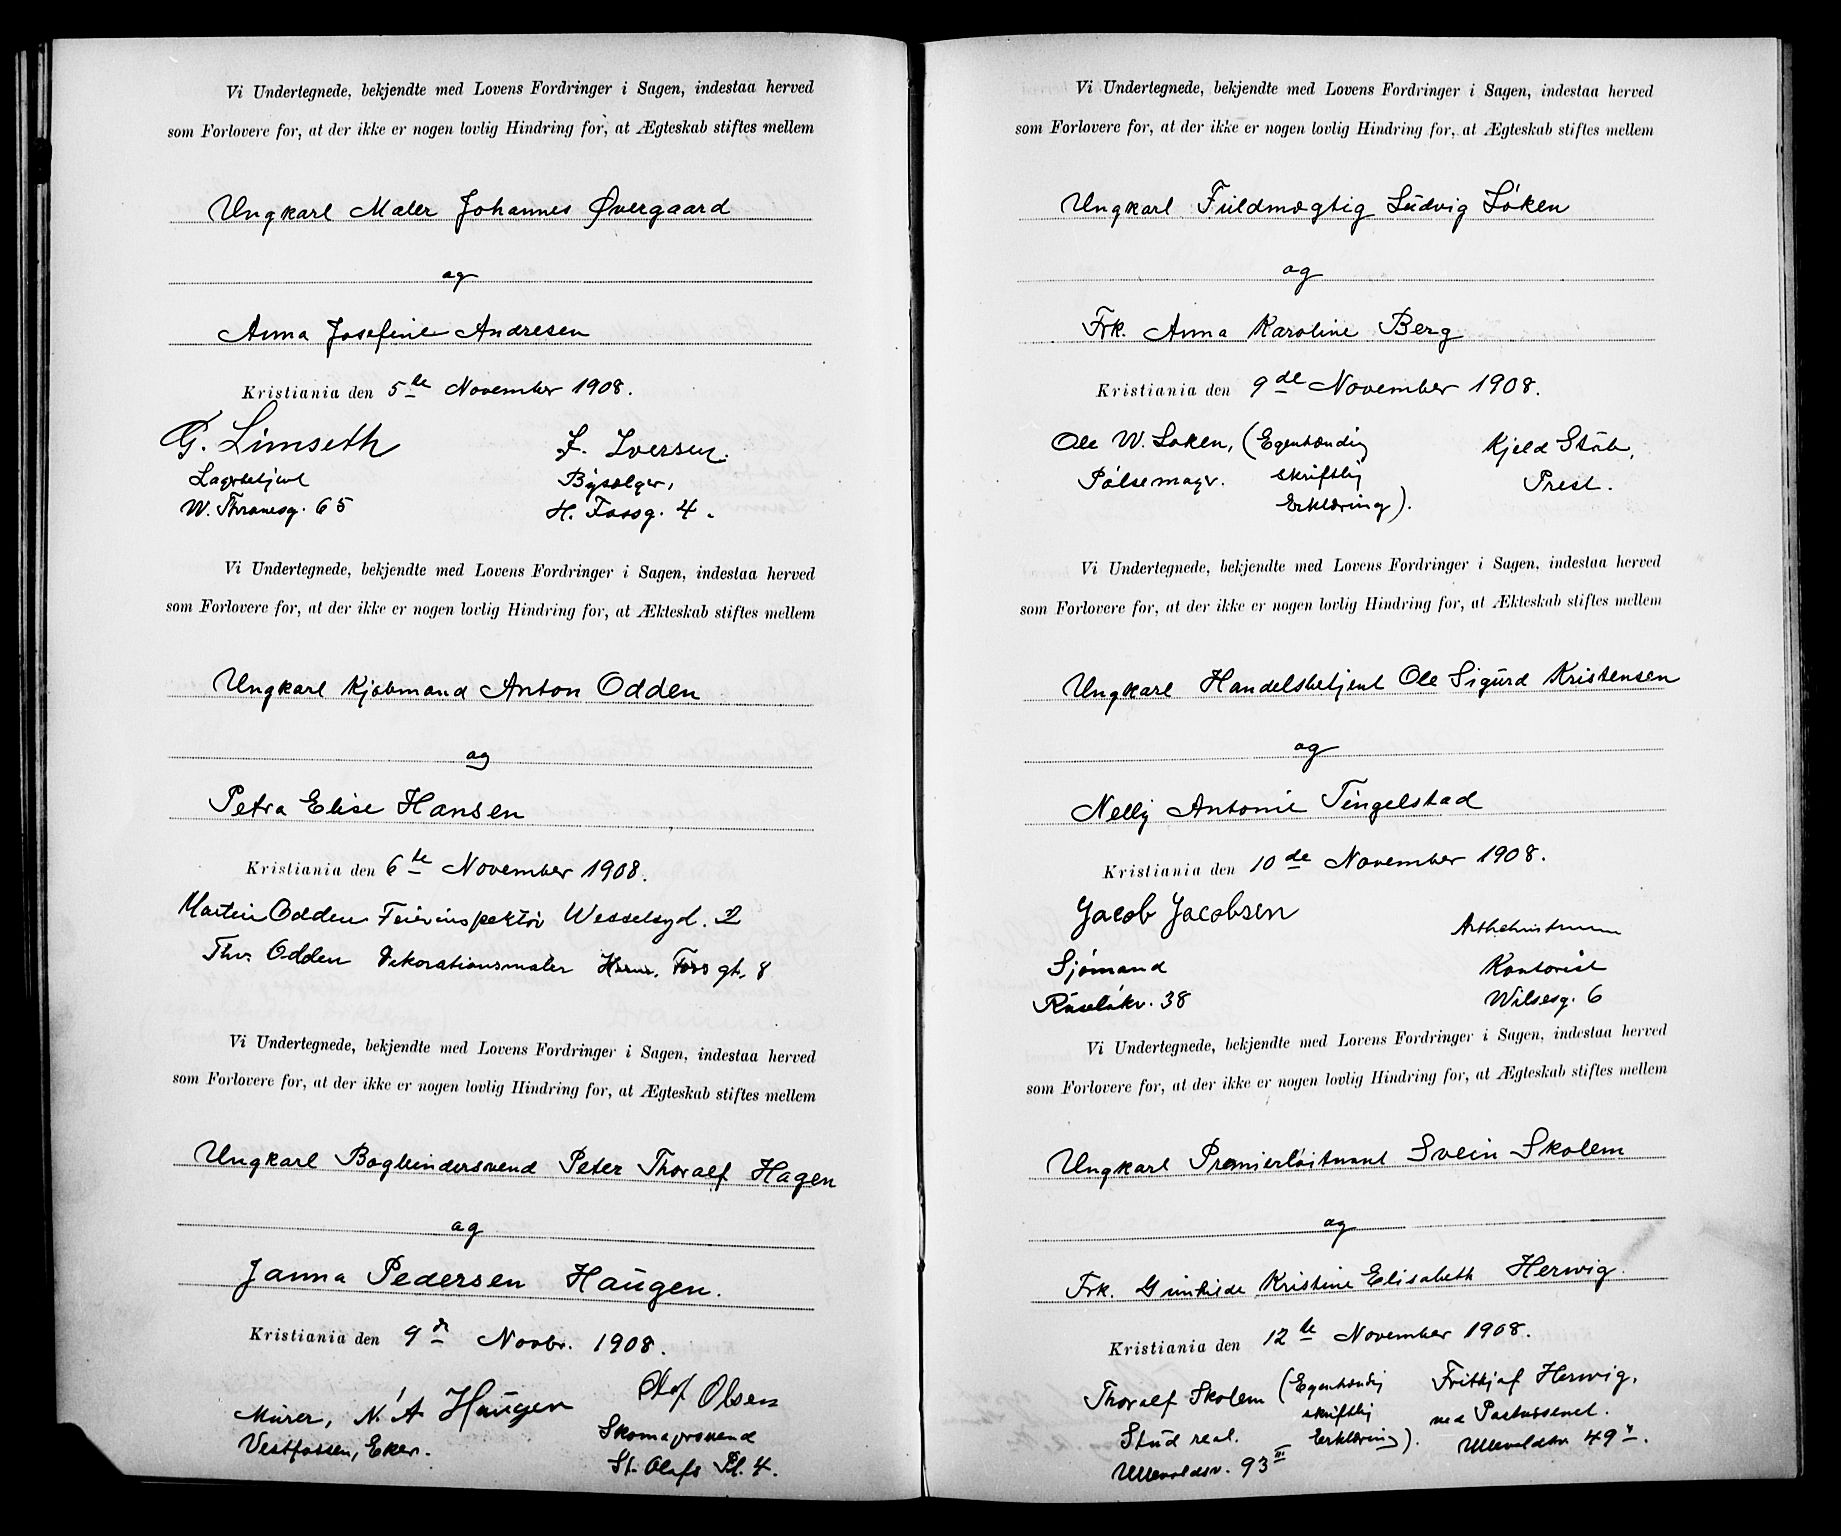 Vi Undertegnede, bekjendte med Lovens Fordringer i Sagen, indestaa herved
som Forlovere for, at der ikke er nogen lovlig Hindring for, at Ægteskab stiftes mellem
Ungkarl Maler Johannes Øvergaard
og
Anna Josefine Andresen
Kristiania den 5te November 1908.
G. Limseth
Lagerbetjent
W. Thranesg. 65
J. Iversen.
Bysælger,
H. Fossg. 4.
Vi Undertegnede, bekjendte med Lovens Fordringer i Sagen, indestaa herved
som Forlovere for, at der ikke er nogen lovlig Hindring for, at Ækteskab stiftes mellem
Ungkarl Kjøbmand Anton Odden
og
Petra Elise Hansen
Kristiania den 6te November 1908.
Martin Odden Feierinspektör Wesselsgd. 2
Thv. Odden Dekorationsmaler Foss gt. 8
Vi Undertegnede, bekjendte med Lovens Fordringer i Sagen, indestaa herved
som Forlovere for, at der ikke er nogen lovlig Hindring for, at Ægteskab stiftes mellem
Ungkarl Bogbindersvend Peter Thoralf Hagen
og
Janna Pedersen Haugen.
Kristiania den 9de Novbr. 1908.
Murer, N. A Haugen
Vestfossen, Eker.
Olaf Olsen
Skomagersvend
St. Olafs Pl. 4.
Vi Undertegnede, bekjendte med Lovens Fordringer i Sagen, indestaa herved
som Forlovere for, at der ikke er nogen lovlig Hindring for, at Ægteskab stiftes mellem
Ungkarl Fuldmægtig Ludvig Løken
og
Frk. Anna Karoline Berg
Kristiania den 9de November 1908.
Ole W. Løken, (Egenhændig
Pølsemager. skriftlig
Erklæring).
Kjeld Stub,
Prest.
Vi Undertegnede, bekjendte med Lovens Fordringer i Sagen, indestaa herved
som Forlovere for, at der ikke er nogen lovlig Hindring for, at Ækteskab stiftes mellem
Ungkarl Handelsbetjent Ole Sigurd Kristensen
og
Nelly Antonie Tingelstad
Kristiania den 10de November 1908.
Jacob Jacobsen
Sjømand
Ruseløkv. 38
Kontorist
Wilsesg. 6
Vi Undertegnede, bekjendte med Lovens Fordringer i Sagen, indestaa herved
som Forlovere for, at der ikke er nogen lovlig Hindring for, at Ægteskab stiftes mellem
Ungkarl Premierløitnant Svein Skolem
og
Frk. Gunhilde Kristine Elisabeth Herwig.
Kristiania den 12te November 1908.
Thoralf Skolem (Egenhændig
Stud real. skriftlig
Ullevoldsv. 93III Erklæring).
Frithjof Herwig,
ved Postvæsenet.
Ullevoldsv. 49